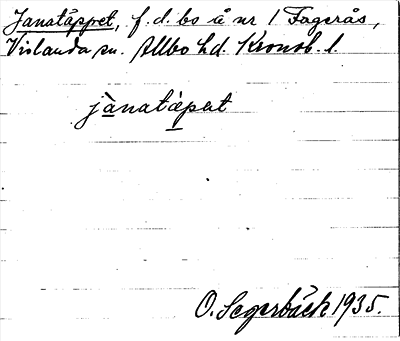 Janatäppet, f.d. bs å nr 1 Fagerås,
Vislanda sn. Allbo hd. Kronob. l.
jànatàpeit
O. Segerbäck 1935.